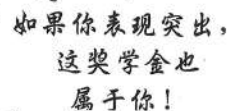 如果你表现突出，
这奖学金也
属于你！